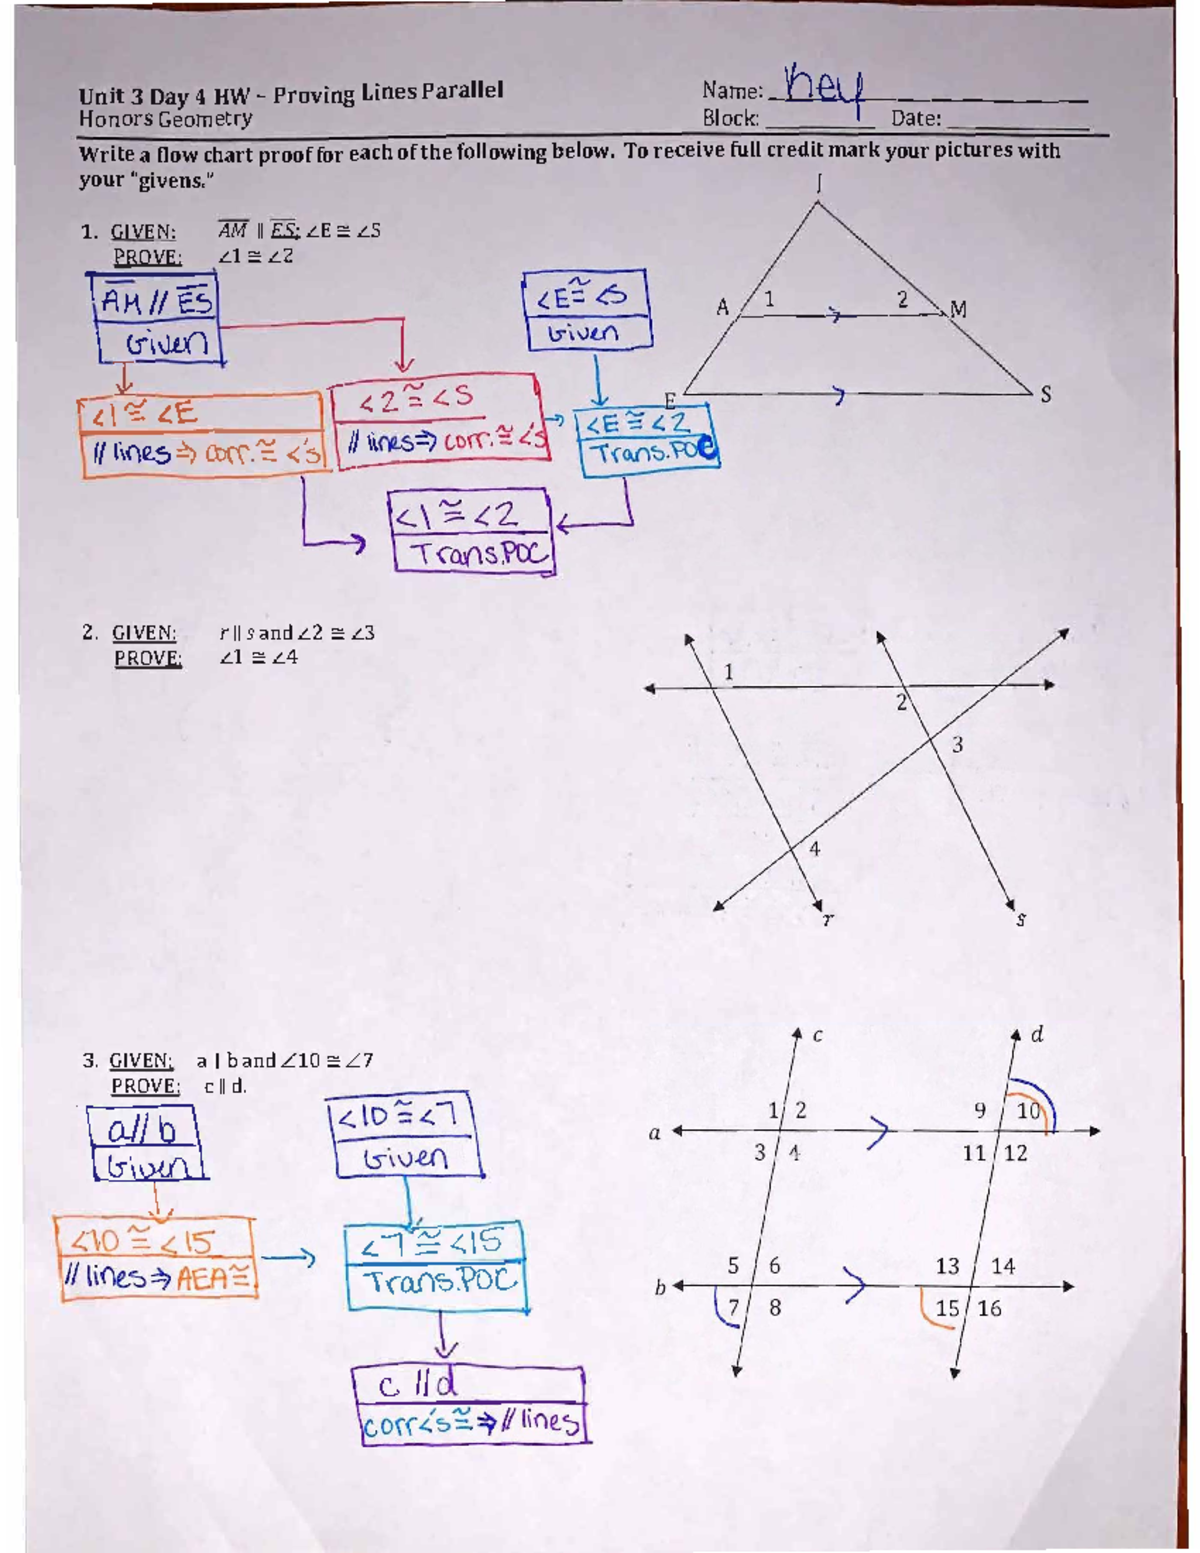 Unit 3 Day 4 HW – Proving Lines Parallel
Name: hey
Honors Geometry
Block: Date:
Write a flow chart proof for each of the following below. To receive full credit mark your pictures with
your "givens."
J
1. GIVEN: AM ∥ ES; ∠E ≅ ∠S
PROVE: ∠1 ≅ ∠2
AM // ES
Given
∠E ≅ ∠S
Given
A 1 2 M
E S
∠1 ≅ ∠E
// lines ⇒ corr. ≅ ∠'s
∠2 ≅ ∠S
// lines ⇒ corr. ≅ ∠'s
∠E ≅ ∠2
Trans.POC
∠1 ≅ ∠2
Trans.POC
2. GIVEN: r ∥ s and ∠2 ≅ ∠3
PROVE: ∠1 ≅ ∠4
1
2
3
4
r s
3. GIVEN: a | b and ∠10 ≅ ∠7
PROVE: c ∥ d.
a // b
Given
∠10 ≅ ∠7
Given
∠10 ≅ ∠15
// lines ⇒ AEA ≅
∠7 ≅ ∠15
Trans.POC
c // d
corr ∠'s ≅ ⇒ // lines
c d
1 2 9 10
a
3 4 11 12
5 6 13 14
b
7 8 15 16